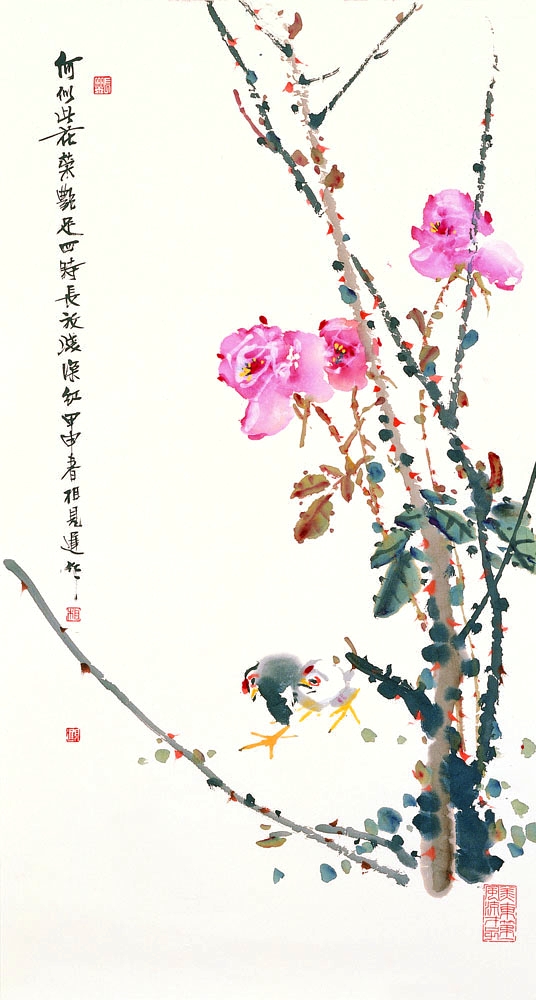 何似此花榮艷足四時長放淺深紅甲申春相見遲作